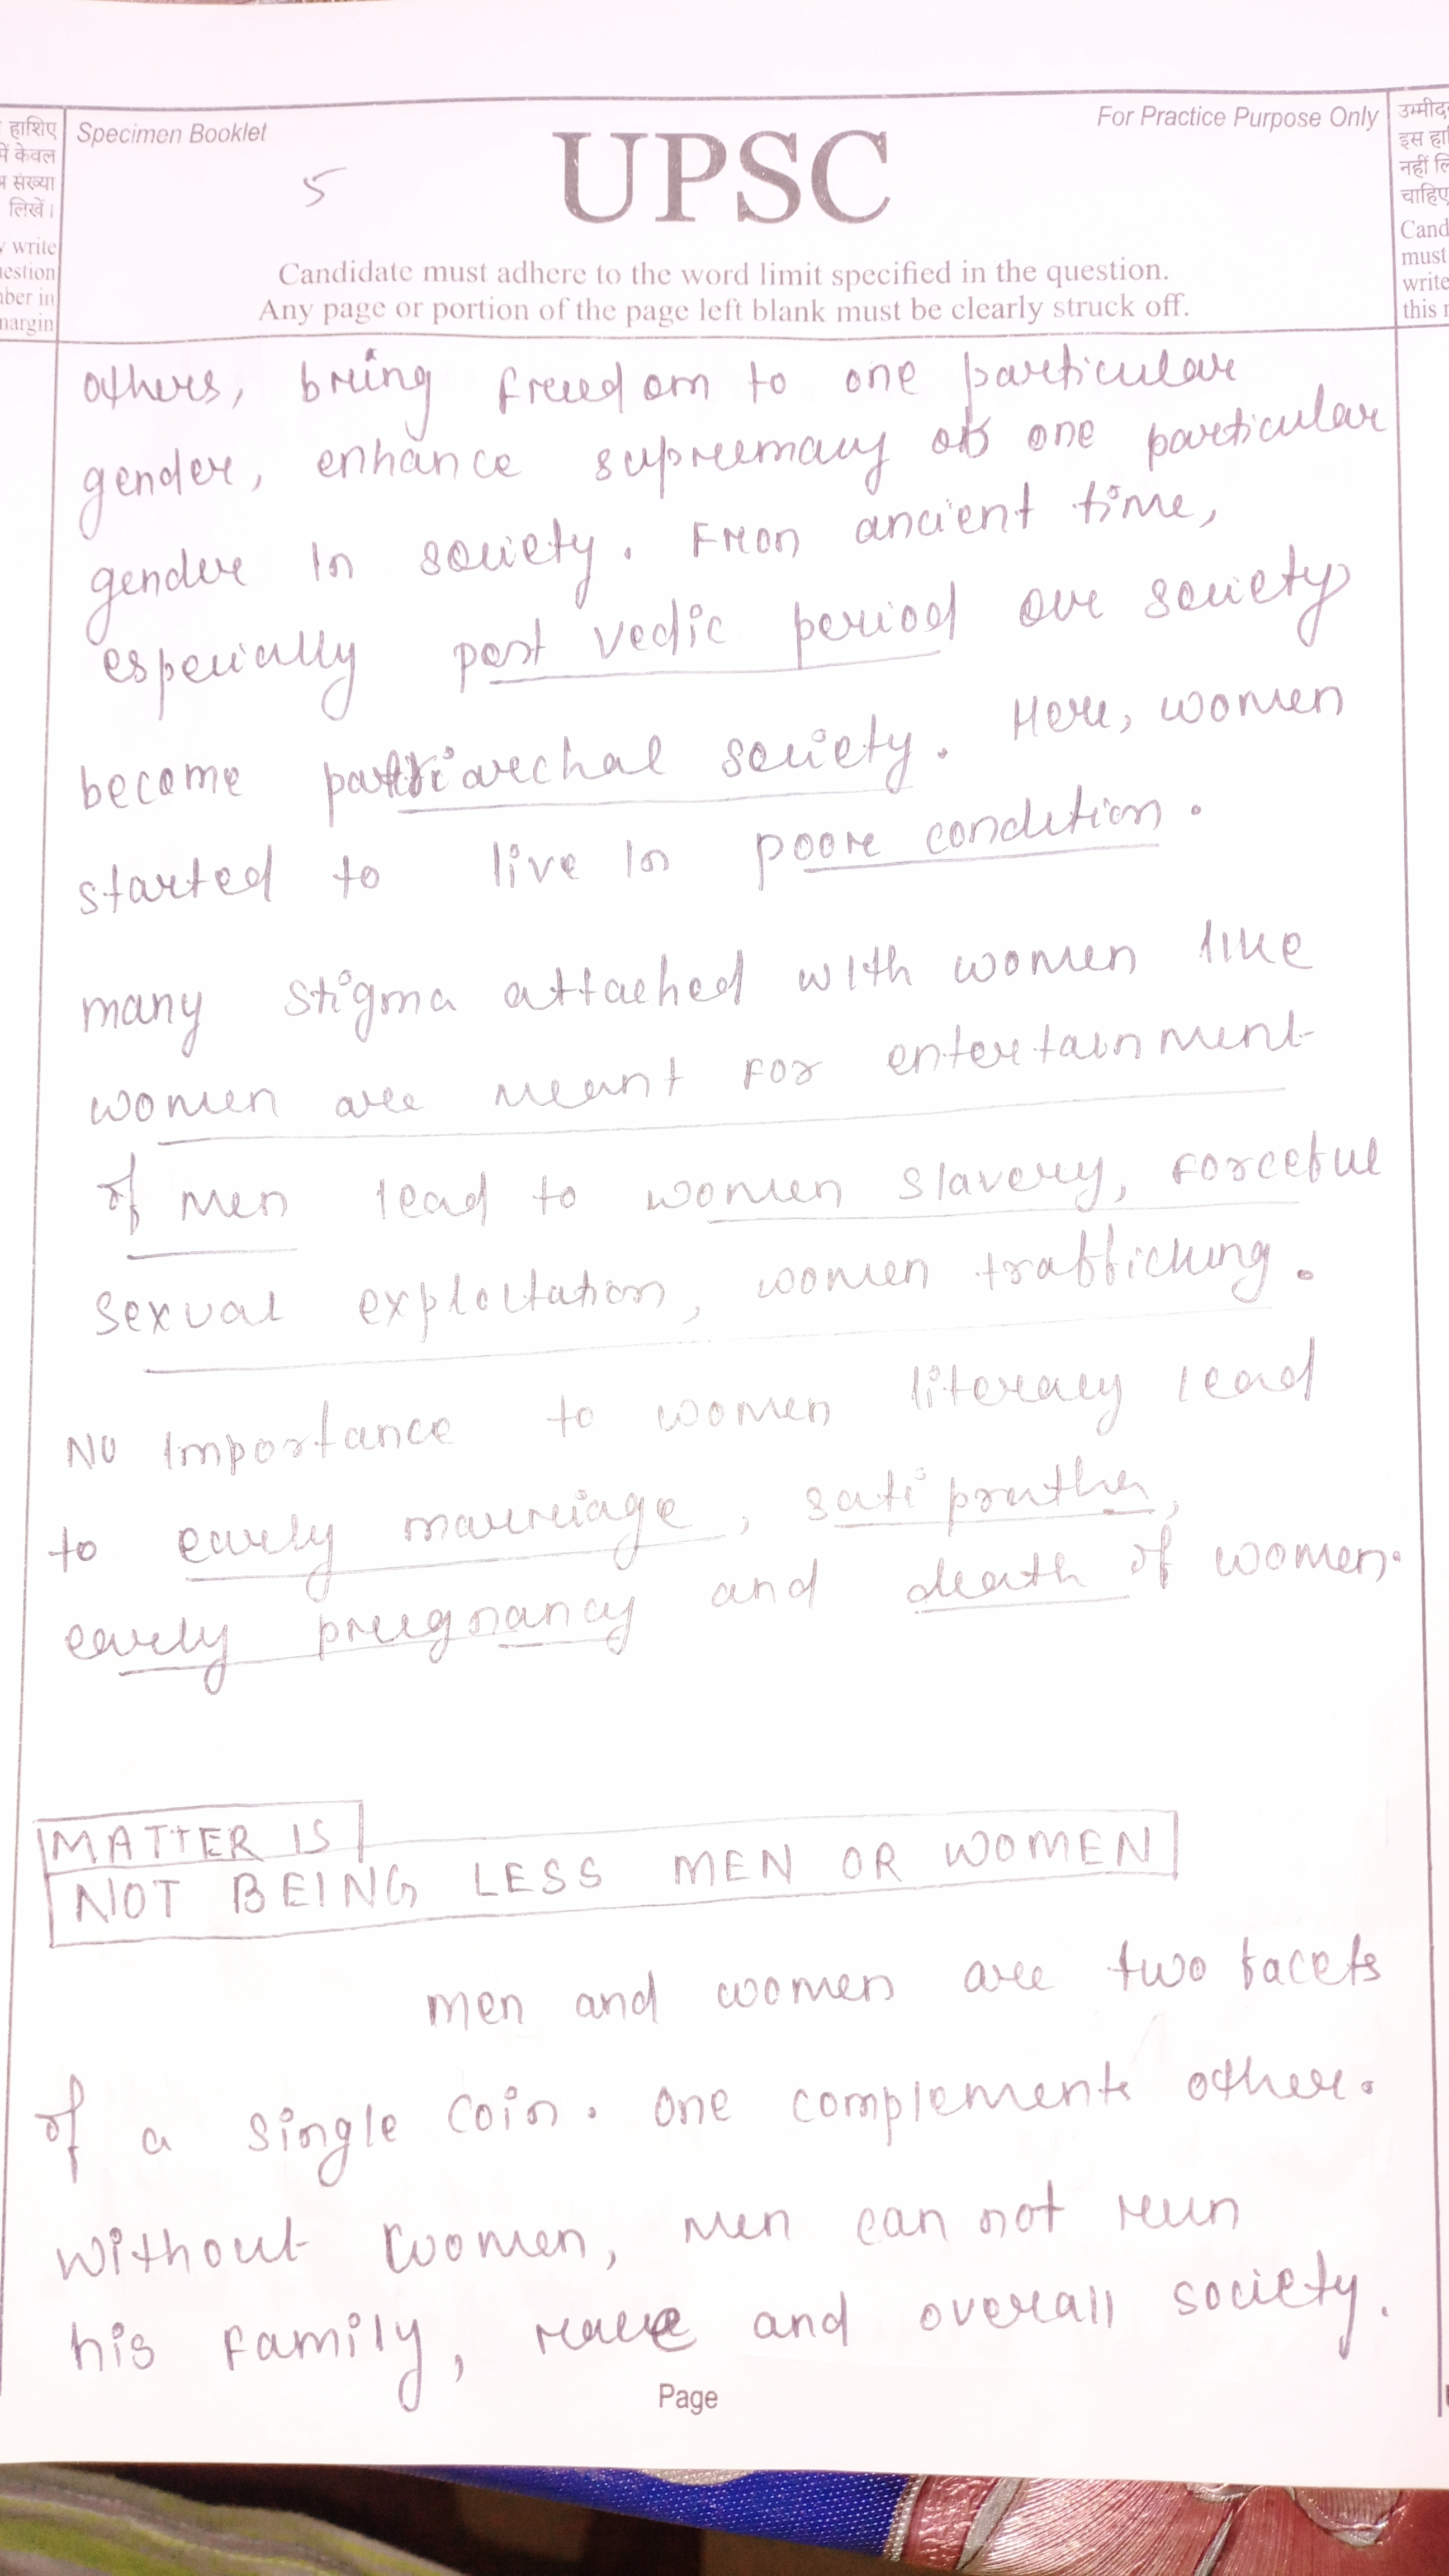 हाशिए
में केवल
संख्या
लिखें।
write
in
margin
Specimen Booklet
5
UPSC
For Practice Purpose Only
Candidate must adhere to the word limit specified in the question.
Any page or portion of the page left blank must be clearly struck off.
इस
नहीं
must
write
this
others, bring freedom to one particular
gender, enhance supremacy of one particular
gender in society. Fron ancient time,
especially post vedic period our society
become patriarchal society. Here, women
started to live in poor condition.
many stigma attached with women like
women are meant for entertainment
of men lead to women slavery, forceful
sexual exploitation, women trafficking.
No importance to women literacy lead
to early marriage, sati pratha,
early pregnancy and death of women.
MATTER IS
NOT BEING LESS MEN OR WOMEN
men and women are two facets
of a single coin. One complements other.
without women, men can not run
his family, race and overall society.
Page